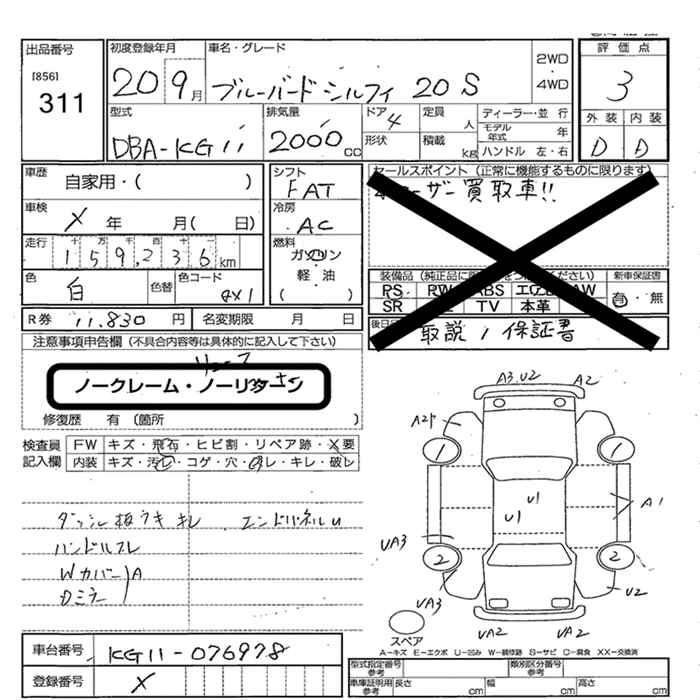 出品番号
[856]
311
初度登録年月
20 9月
車名・グレード
ブルーバードシルフィ 20S
2WD
・
4WD
評価点
3
外装 内装
D D
型式
DBA-KG11
排気量
2000 CC
ドア 4
形状
定員 人
積載 kg
ディーラー・並 行
モデル年式 年
ハンドル 左・右
車歴
自家用・( )
車検
X 年 月( 日)
走行
十 万 千 百 十
159,236 km
色
白
色替
色コード
QX1
シフト
FAT
冷房
AC
燃料
ガソリン
軽・油
( )
セールスポイント (正常に機能するものに限ります)
ーザー買取車!!
装備品
新車保証書
RS RW ABS AW
SR TV 本革
有・無
後日
取説 / 保証書
R券 11,830 円 名変期限 月 日
注意事項申告欄 (不具合内容等は具体的に記入して下さい)
ノークレーム・ノーリターン
修復歴 有 〔箇所 〕
検査員
記入欄
FW キズ・飛石・ヒビ割・リペア跡・X要
内装 キズ・汚レ・コゲ・穴・スレ・キレ・破レ
ダッシュ板ウキ キレ エンドパネルU
ハンドルスレ
Wカバー A
Dミラー
A3.U2 A2
1 1
U1
U1
A1
UA3
2 2
UA3
U2
UA2 UA2
スペア
A-キズ E-エクボ U-凹み W-補修跡 S-サビ C-腐食 XX-交換済
車台番号 KG11-076978
登録番号 X
型式指定番号 参考
類別区分番号 参考
車庫証明用 参考 長さ cm 幅 cm 高さ cm